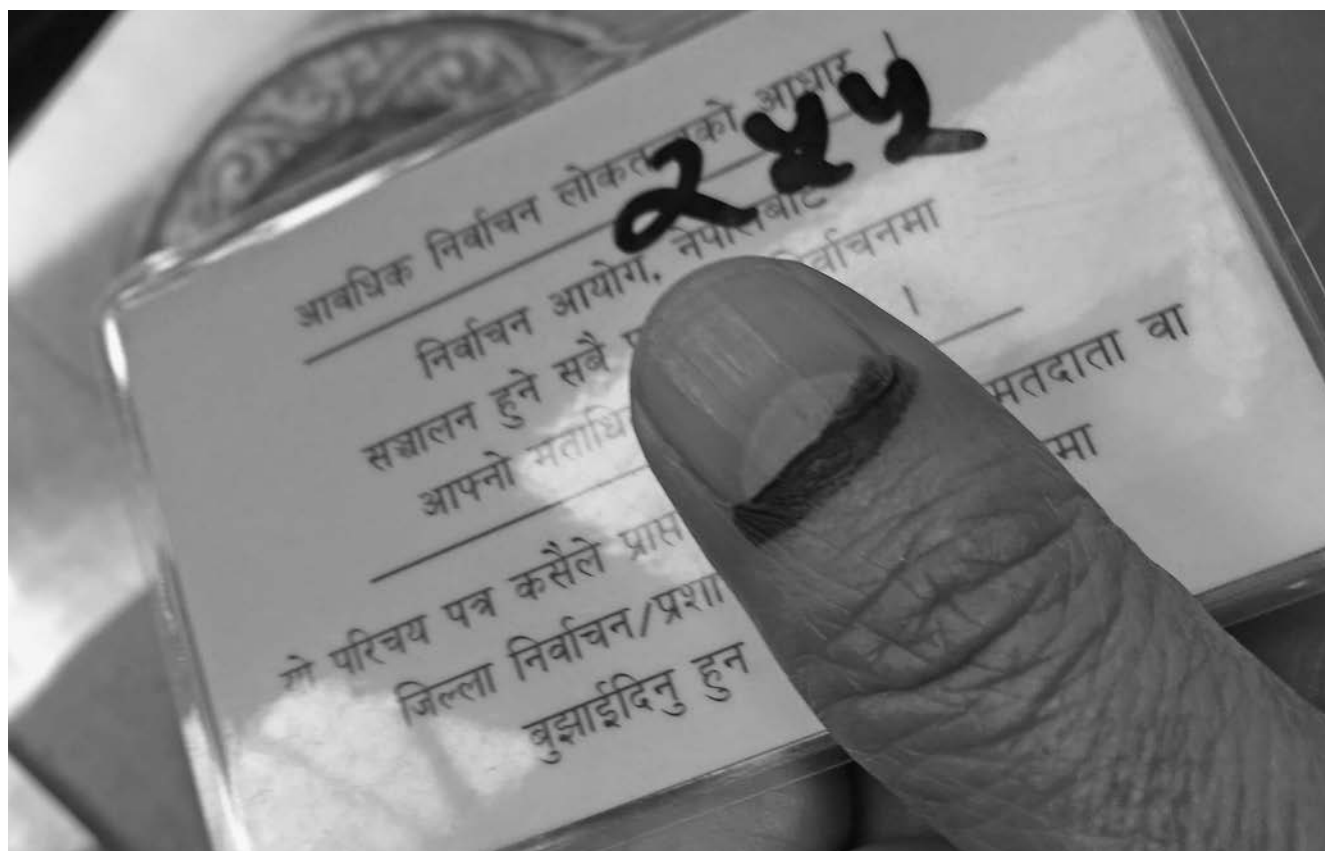 २४५
आवधिक निर्वाचन आधार ।
निर्वाचन आयोग, नेपालबाट
सञ्चालन हुने सबै निर्वाचनमा
आफ्नो ।
यो परिचय पत्र कसैले मतदाता वा
जिल्ला निर्वाचन/प्रशा मा
बुझाईदिनु हुन